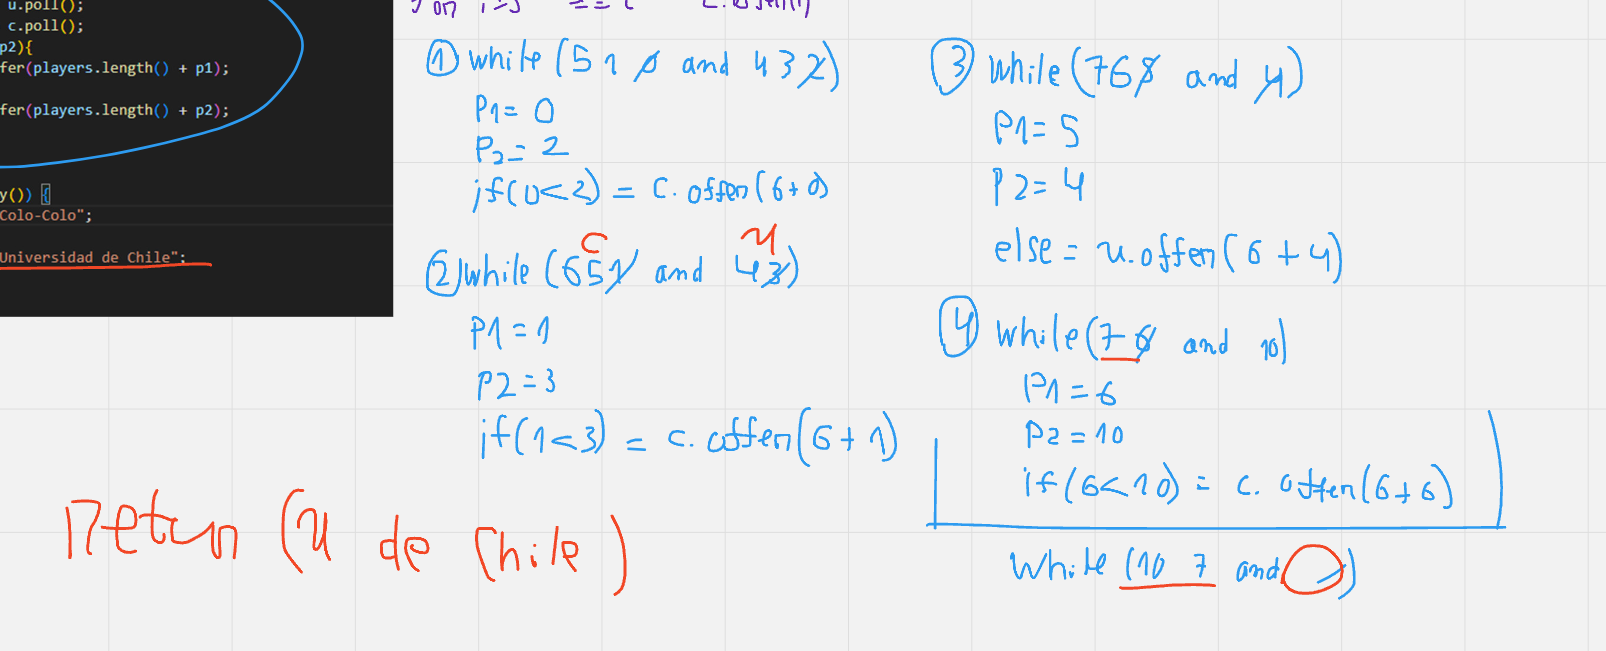 u.poll();
c.poll();
p2){
fer(players.length() + p1);
fer(players.length() + p2);
y()) {
Colo-Colo";
Universidad de Chile";
① while (5 1 0 and 4 3 2)
P1= 0
P2= 2
if(0<2) = c.offer(6+0)
c u
② while (6 5 1 and 4 3)
P1 = 1
P2 = 3
if(1<3) = c.offer(6+1)
③ while(7 6 5 and 4)
P1= 5
P2= 4
else = u.offer(6+4)
④ while(7 6 and 10)
P1 = 6
P2 = 10
if(6<10) = c.offer(6+6)
while (10 7 and )
return (u de chile)